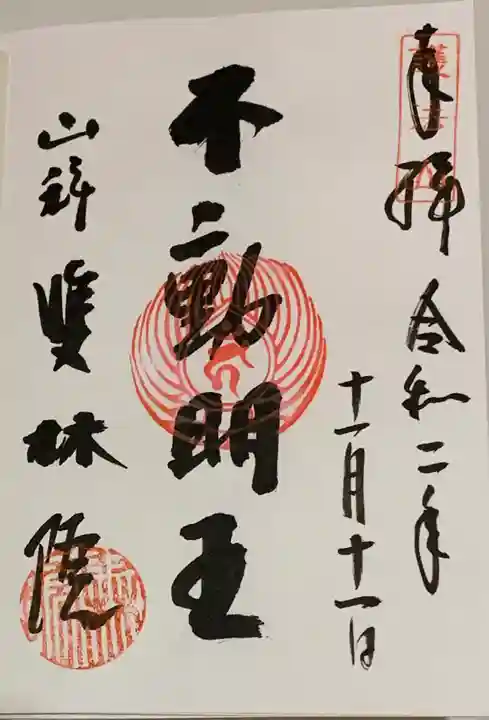 奉拝
令和二年
十一月十一日
不動明王
山科 雙林院